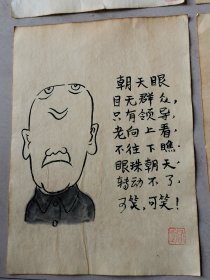 朝天眼
目无群众,
只有领导,
老向上看
不往下瞧.
眼珠朝天
转动不了,
可笑,可笑!